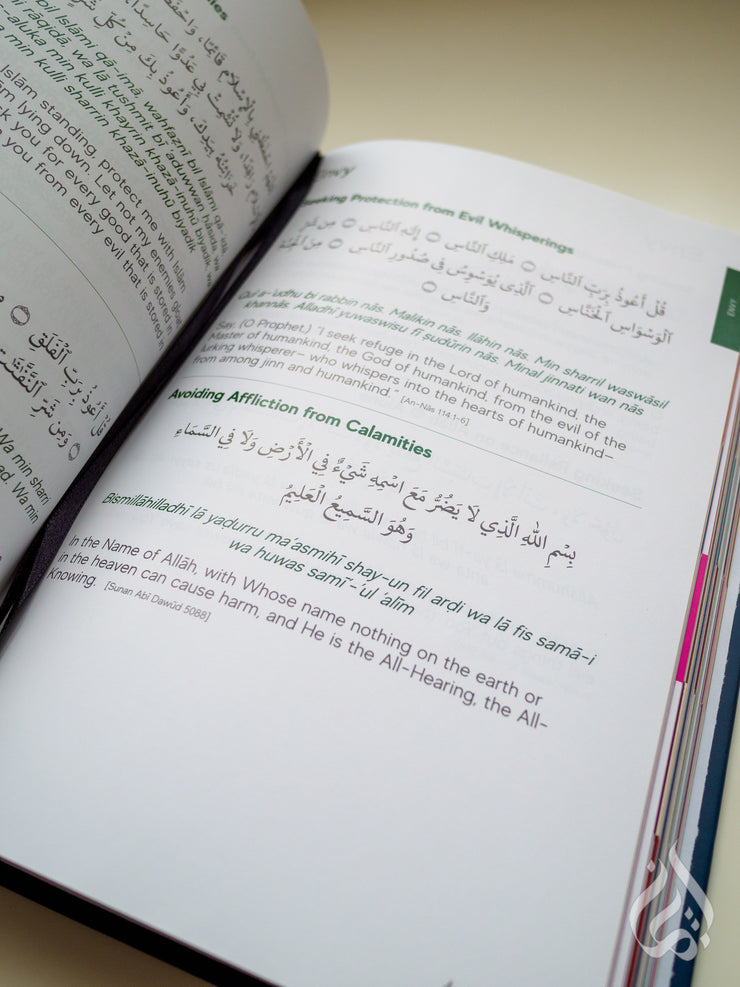 bil Islāmi qā-imā, wahfaznī bil Islāmi qā-
rāqidā, wa lā tushmit bī 'aduwwan hāsidā, wa
-aluka min kulli khayrin khazā-inuhū biyadik,
min kulli sharrin khazā-inuhū biyadik
Islām standing, protect me with Islām
lying down. Let not my enemies gloat
you for every good that is stored in
you from every evil that is stored in
قُلْ أَعُوذُ بِرَبِّ ٱلْفَلَقِ
وَمِن شَرِّ ٱلنَّفَّٰثَٰتِ
Wa min sharri
ad. Wa min
Envy
Seeking Protection from Evil Whisperings
قُلْ أَعُوذُ بِرَبِّ ٱلنَّاسِ ۝ مَلِكِ ٱلنَّاسِ ۝ إِلَٰهِ ٱلنَّاسِ ۝ مِن شَرِّ
ٱلْوَسْوَاسِ ٱلْخَنَّاسِ ۝ ٱلَّذِى يُوَسْوِسُ فِى صُدُورِ ٱلنَّاسِ ۝ مِنَ ٱلْجِنَّةِ
وَٱلنَّاسِ ۝
Qul a-'ūdhu bi rabbin nās. Malikin nās. Ilāhin nās. Min sharril waswāsil
khannās. Alladhī yuwaswisu fī sudūrin nās. Minal jinnati wan nās
Say, (O Prophet,) "I seek refuge in the Lord of humankind, the
Master of humankind, the God of humankind, from the evil of the
lurking whisperer– who whispers into the hearts of humankind–
from among jinn and humankind." [An-Nās 114:1-6]
Avoiding Affliction from Calamities
بِسْمِ اللهِ الَّذِي لَا يَضُرُّ مَعَ اسْمِهِ شَيْءٌ فِي الْأَرْضِ وَلَا فِي السَّمَاءِ
وَهُوَ السَّمِيعُ الْعَلِيمُ
Bismillāhilladhī lā yaḍurru ma'asmihī shay-un fil arḍi wa lā fis samā-i
wa huwas samī-'ul 'alīm
In the Name of Allāh, with Whose name nothing on the earth or
in the heaven can cause harm, and He is the All-Hearing, the All-
Knowing. [Sunan Abī Dawūd 5088]
ENVY